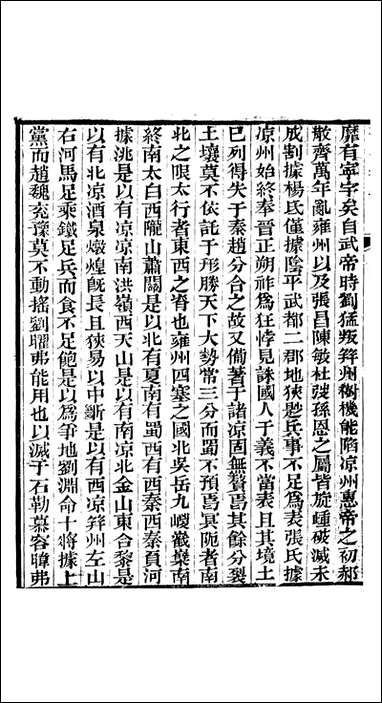 靡有寧宇矣自武帝時劉猛叛幷州樹機能陷涼州惠帝之初郝
散齊萬年亂雍州以及張昌陳敏杜弢孫恩之屬皆旋踵破滅未
成割據楊氏僅據陰平武都二郡地狹尠兵事不足爲表張氏據
凉州始終奉晉正朔祚爲狂悖見誅國人于義不當表且其境土
已列得失于秦趙分合之故又備著于諸凉固無贅焉其餘分裂
土壤莫不依託于形勝天下大勢常三分而蜀不預焉冥阨者南
北之限太行者東西之脊也雍州四塞之國北吳岳九嵕巀嶭南
終南太白西隴山蕭關是以北有夏南有蜀西有西秦西秦負河
據洮是以有南凉南洪嶺西天山是以有南凉北金山東合黎是
以有北凉酒泉燉煌旣長且狹易以中斷是以有西凉幷州左山
右河馬足乘鐵足兵而食不足鮑是以爲爭地劉淵命十將據上
黨而趙魏兖豫莫不動搖劉曜弗能用也以滅于石勒慕容暐弗